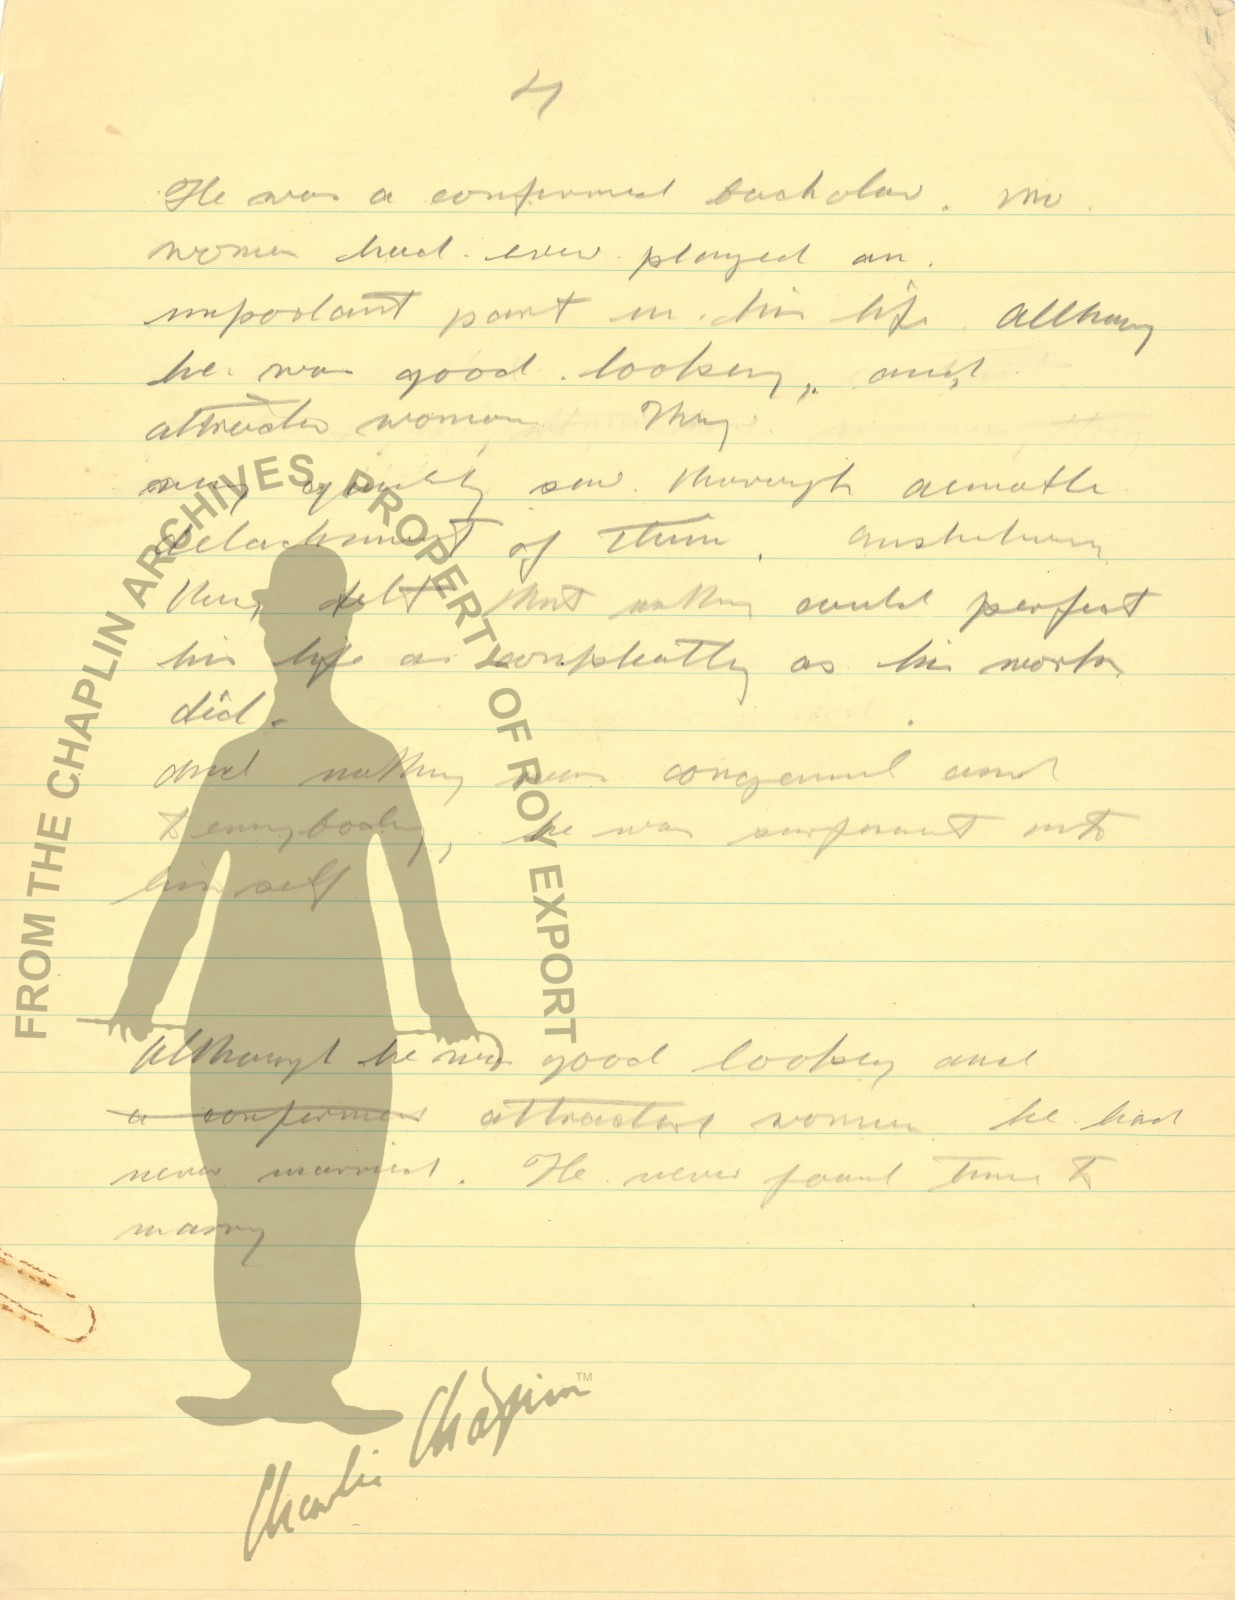 4
He was a confirmed bachelor. No
women had ever played an
important part in his life. Although
he was good looking, and
attracted women. They
very quickly saw through
detachment of them.
they felt that nothing could perfect
his life as completly as his work
did.
and nothing was congenial and
to everybody, he was unto
himself
Although he was good looking and
a confirmed attracted women he had
never married. He never found time to
marry
FROM THE CHAPLIN ARCHIVES, PROPERTY OF ROY EXPORT
Charlie Chaplin™